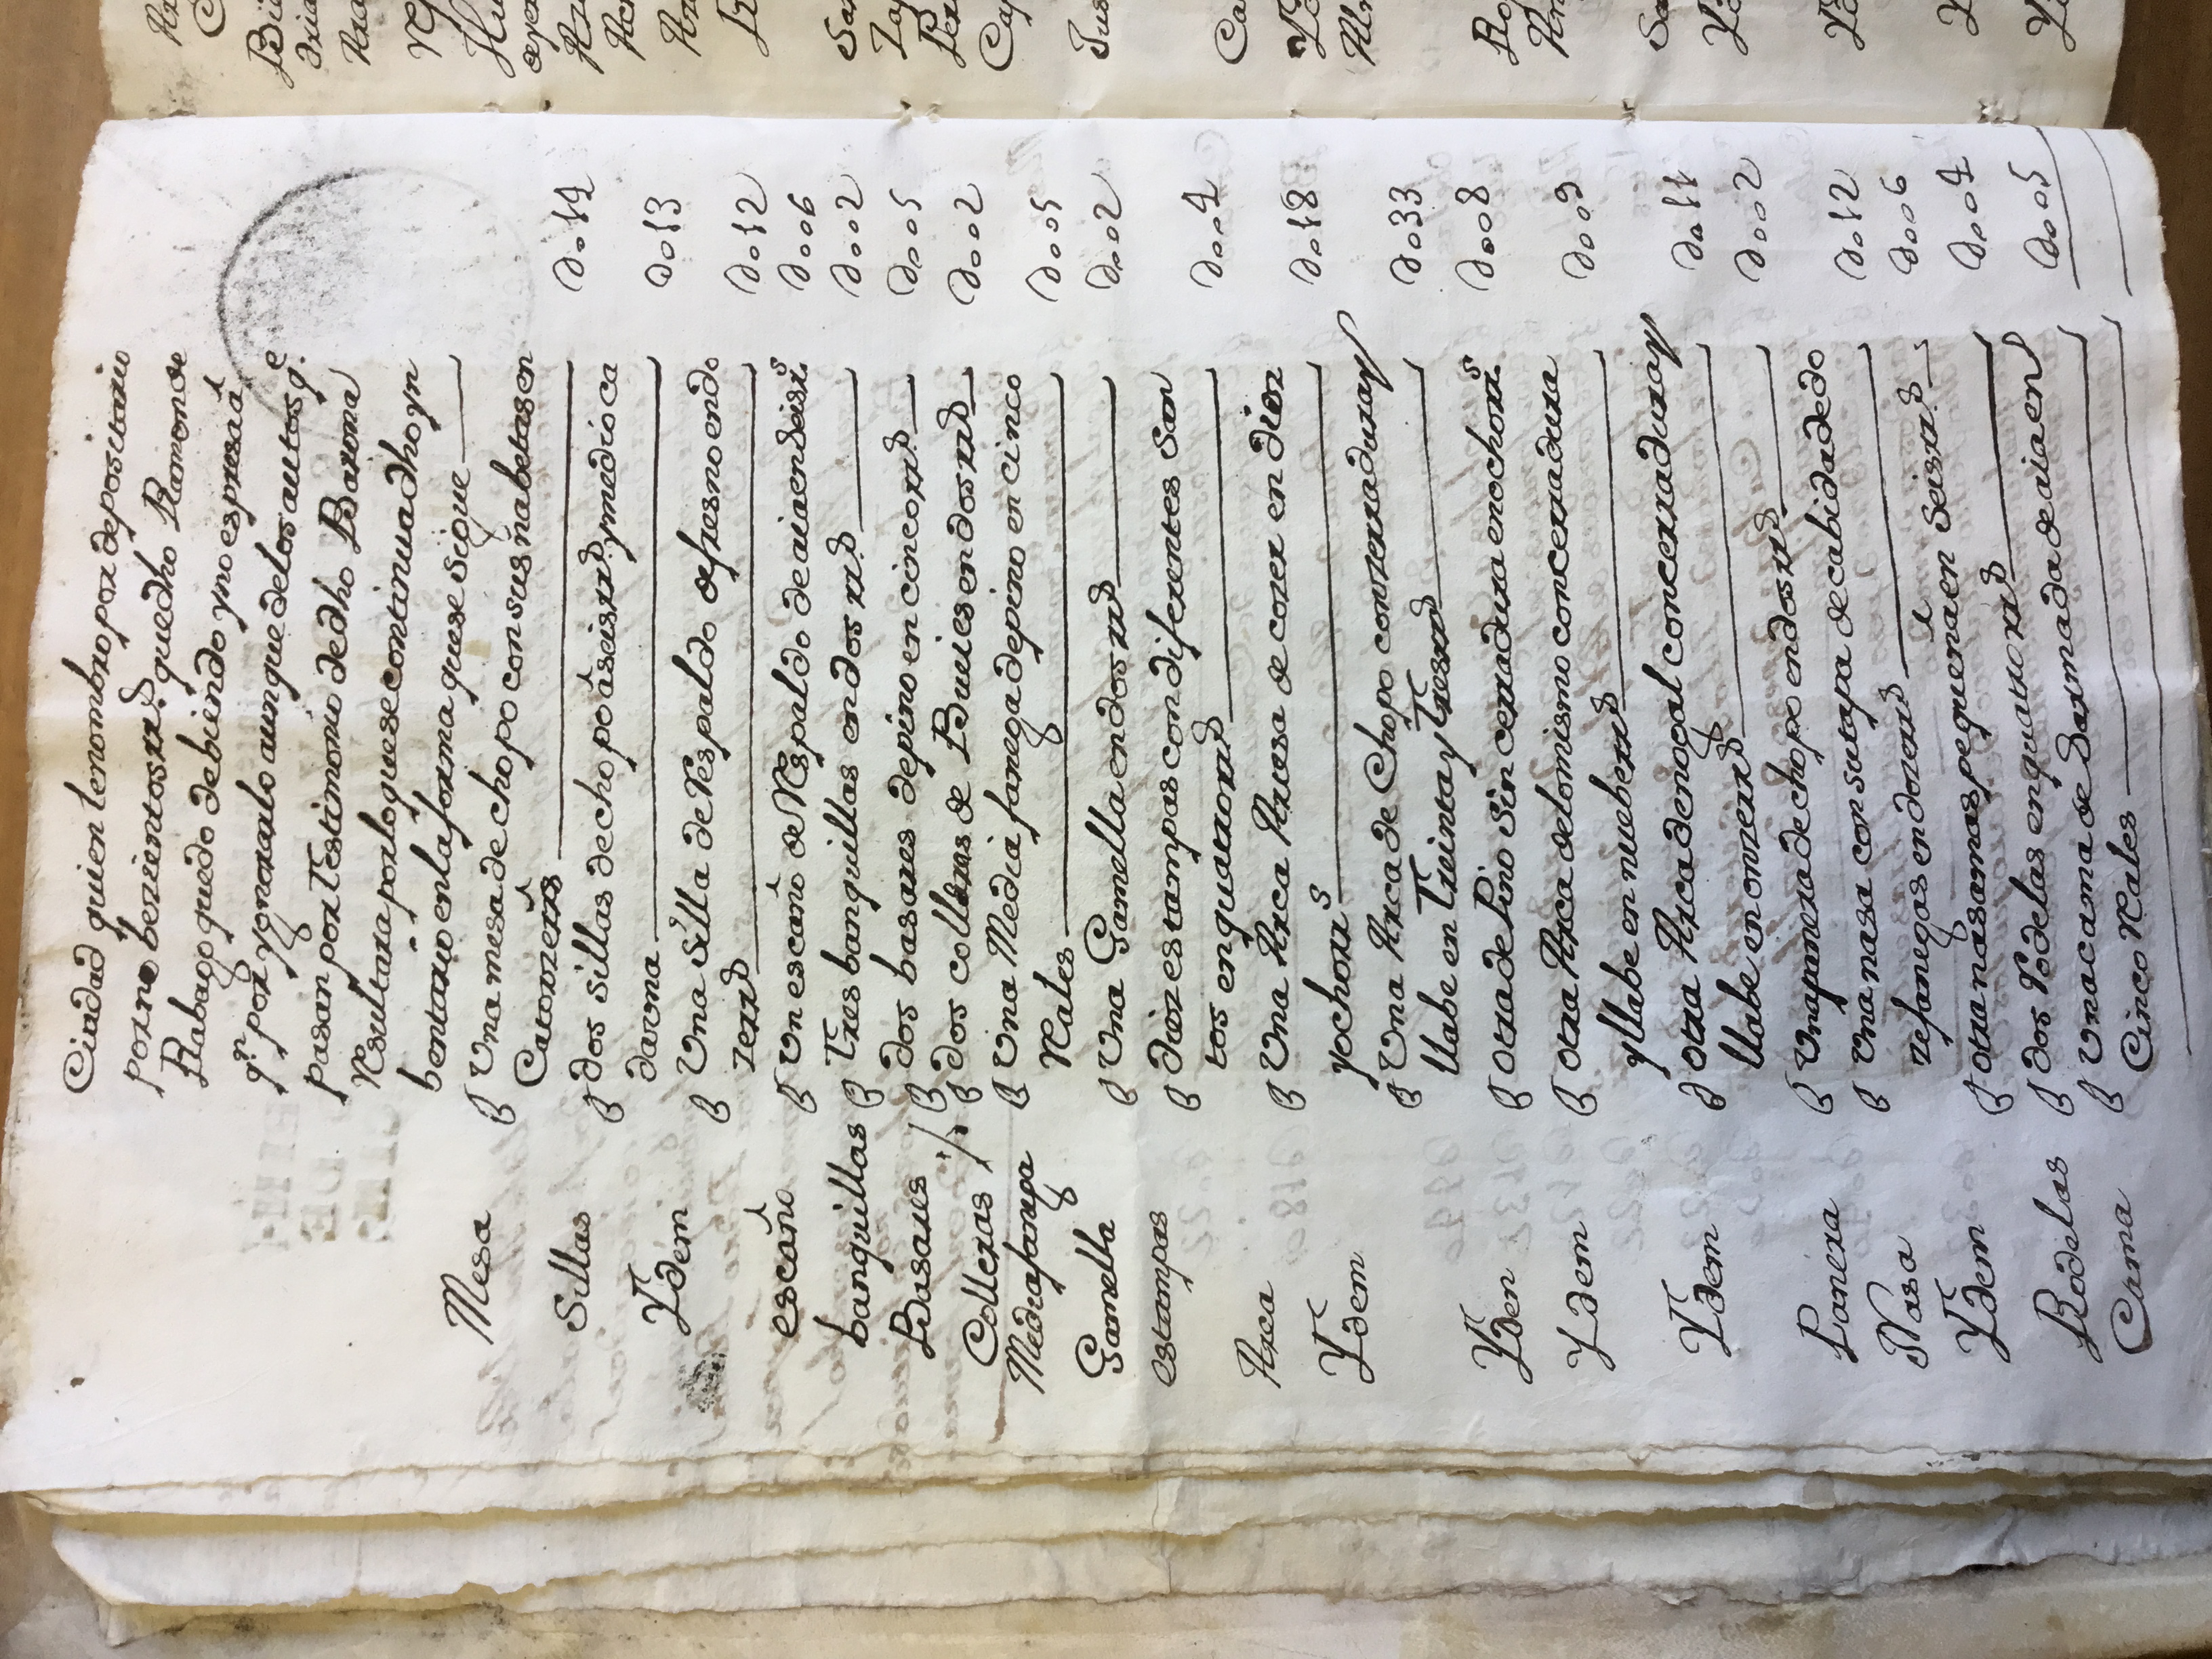 Ciudad quien lenombro por depositario
por no benientos rrs. quedho Ramonde
Rabago quedo debiendo yno espresa á
qn. por ygnorarlo aunque delos autos qe.
pasan por testimonio dedho Barona
Resultara porloquesecontinuadho yn
bentario enla forma quese sigue
Mesa Una mesa de chopo con sus nabetas en
Catorzerrs d.o14
Sillas dos sillas dechopo á seisrrs. ymedio ca
dauna d.o13
Ydem Una silla de Respaldo defresno endo
zerrs d.o12
escaño Un escaño de Respaldo de aiaenseisrrs. d.oo6
banquillas Tres banquillas en dos rrs. d.oo2
Basares dos basares depino en cincorrs. d.oo5
Colleras dos colleras de Bueies en dosrrs d.oo2
Mediafanega Una Media fanega depino en cinco
Reales d.oo5
Gamella Una Gamella en dosrrs d.oo2
estampas diez estampas con diferentes san
tos en quatrorrs d.oo4
Arca Una Arca Gruesa de corer en diez
yochorrs d.o18
Ydem Una Arca de Chopo conzerraduray
llabe en Treinta y Tresrrs d.o33
Yden otra de Pino sin cerradura enochorrs. d.oo8
Ydem otra Arca delomismo concerradura
yllabe en nueberrs d.oo9
Ydem otra Arca denogal concerraduray
llabe en onzerrs d.o11
Panera Una panera de chopo en dosrrs d.oo2
Nasa Una nasa con sutapa de cabidadedo
zefanegas en dozerrs d.o12
Ydem otra nasamas pequeña en seisrrs. d.oo6
Rodelas dos Rodelas en quatrorrs d.oo4
Cama Una cama de Darmada de aia en
Cinco Reales d.oo5